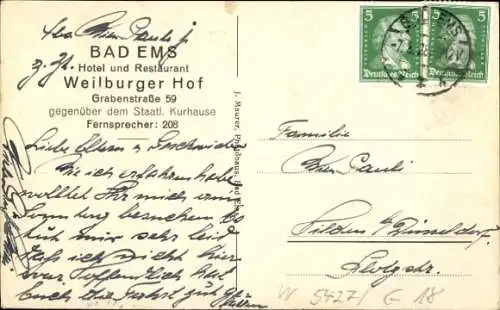 BAD EMS
Hotel und Restaurant
Weilburger Hof
Grabenstraße 59
gegenüber dem Staatl. Kurhause
Fernsprecher: 208
Liebe Eltern u. Geschwister
Wie ich erfahren habe
wolltet Ihr mich am
Sonntag besuchen. Es
tut mir sehr leid
daß ich nicht hier
war. Hoffentlich hat
Euch die Fahrt gut
5 5
Deutsches Reich Deutsches Reich
BAD EMS
J. Maurer, Bad
Familie
Pauli
Hilden b/Düsseldorf
W 5427/ G 18